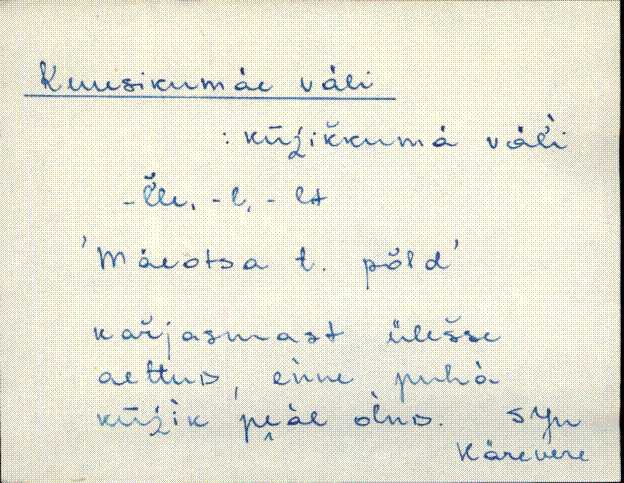 Kuusikumäe väli
: kūʒ́ikkumä väl'i
-l'le, -l, -lt
'Mäeotsa t. põld'
kar̆jasmast ülešse
aettuD, enne puhà
kūʒ́ik peäl olnuD. SJn
Kärevere